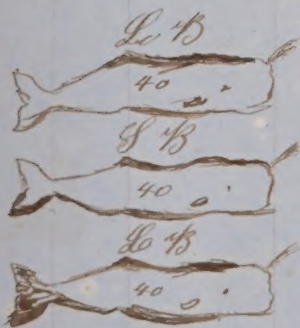 L B
40
S B
40
L B
40